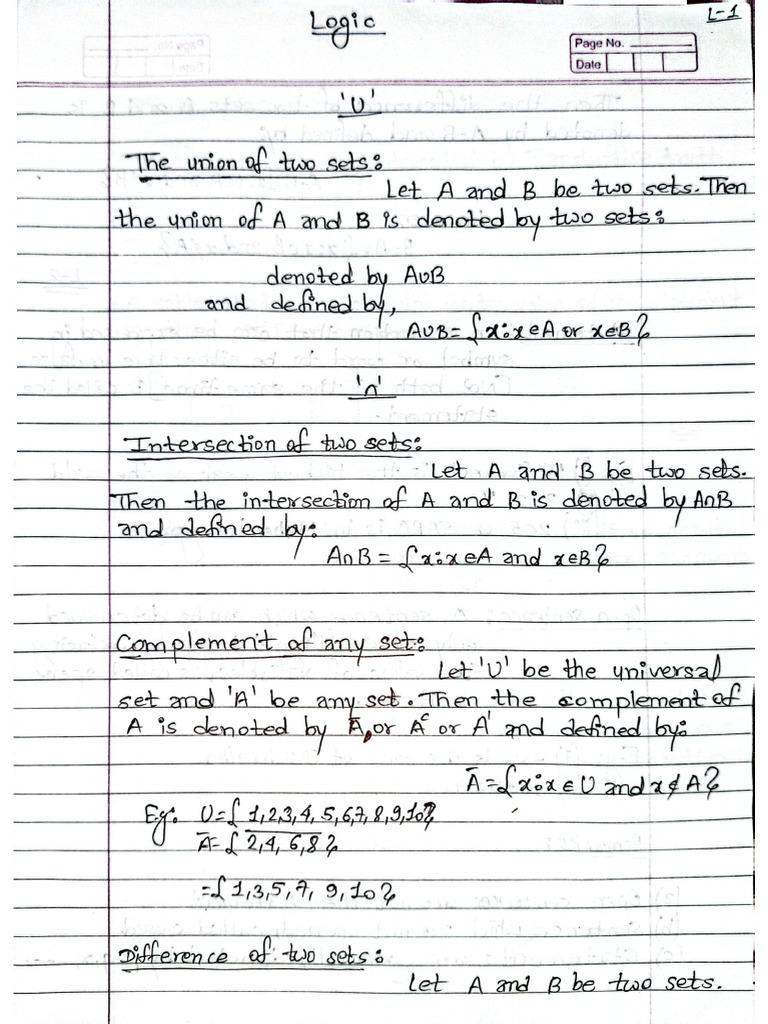 Logic
L-1
Page No.
Date
'U'
The union of two sets:
Let A and B be two sets. Then
the union of A and B is denoted by two sets:
denoted by A∪B
and defined by,
A∪B = {x:x∈A or x∈B}
'∩'
Intersection of two sets:
Let A and B be two sets.
Then the intersection of A and B is denoted by A∩B
and defined by:
A∩B = {x:x∈A and x∈B}
Complement of any set:
Let 'U' be the universal
set and 'A' be any set. Then the complement of
A is denoted by Ā, or Aᶜ or A' and defined by:
Ā = {x:x∈U and x∉A}
Eg: U = {1,2,3,4,5,6,7,8,9,10}
Ā = {2,4,6,8}
= {1,3,5,7,9,10}
Difference of two sets:
Let A and B be two sets.